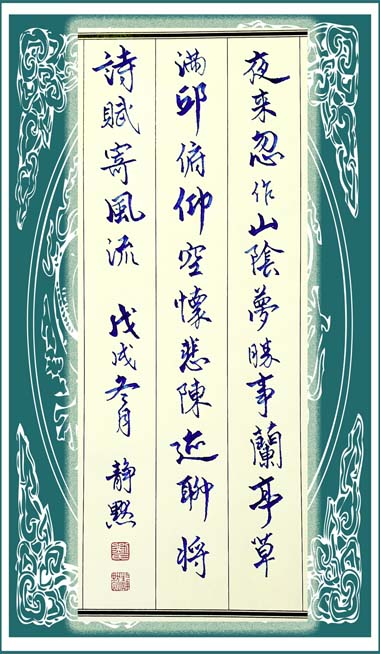 夜来忽作山陰夢勝事蘭亭草
滿邱俯仰空懷悲陳迹聊將
詩賦寄風流 戊戌冬月 静默